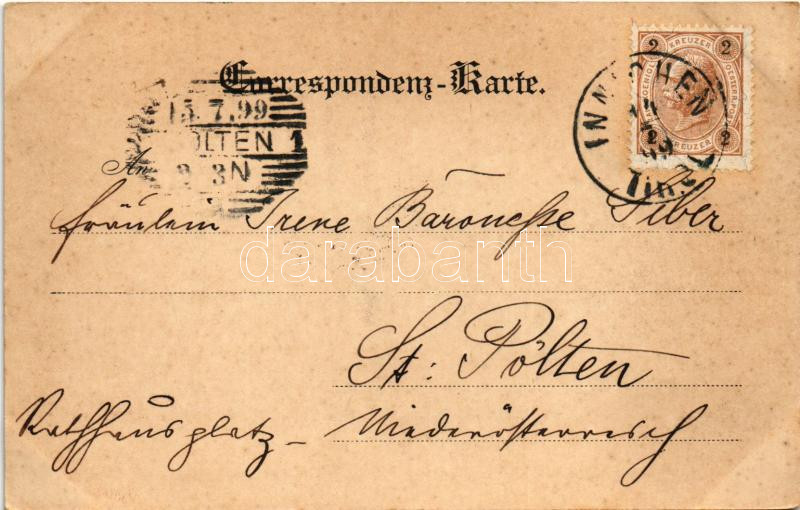 Correspondenz-Karte.
15.7.99
ÖLTEN 1
3N
An
Fräulein Irene Baronesse Siber
St: Pölten
Rathhausplatz – Niederösterreich
INNICHEN
Tirol
2 KREUZER 2
2 KREUZER 2
darabanth